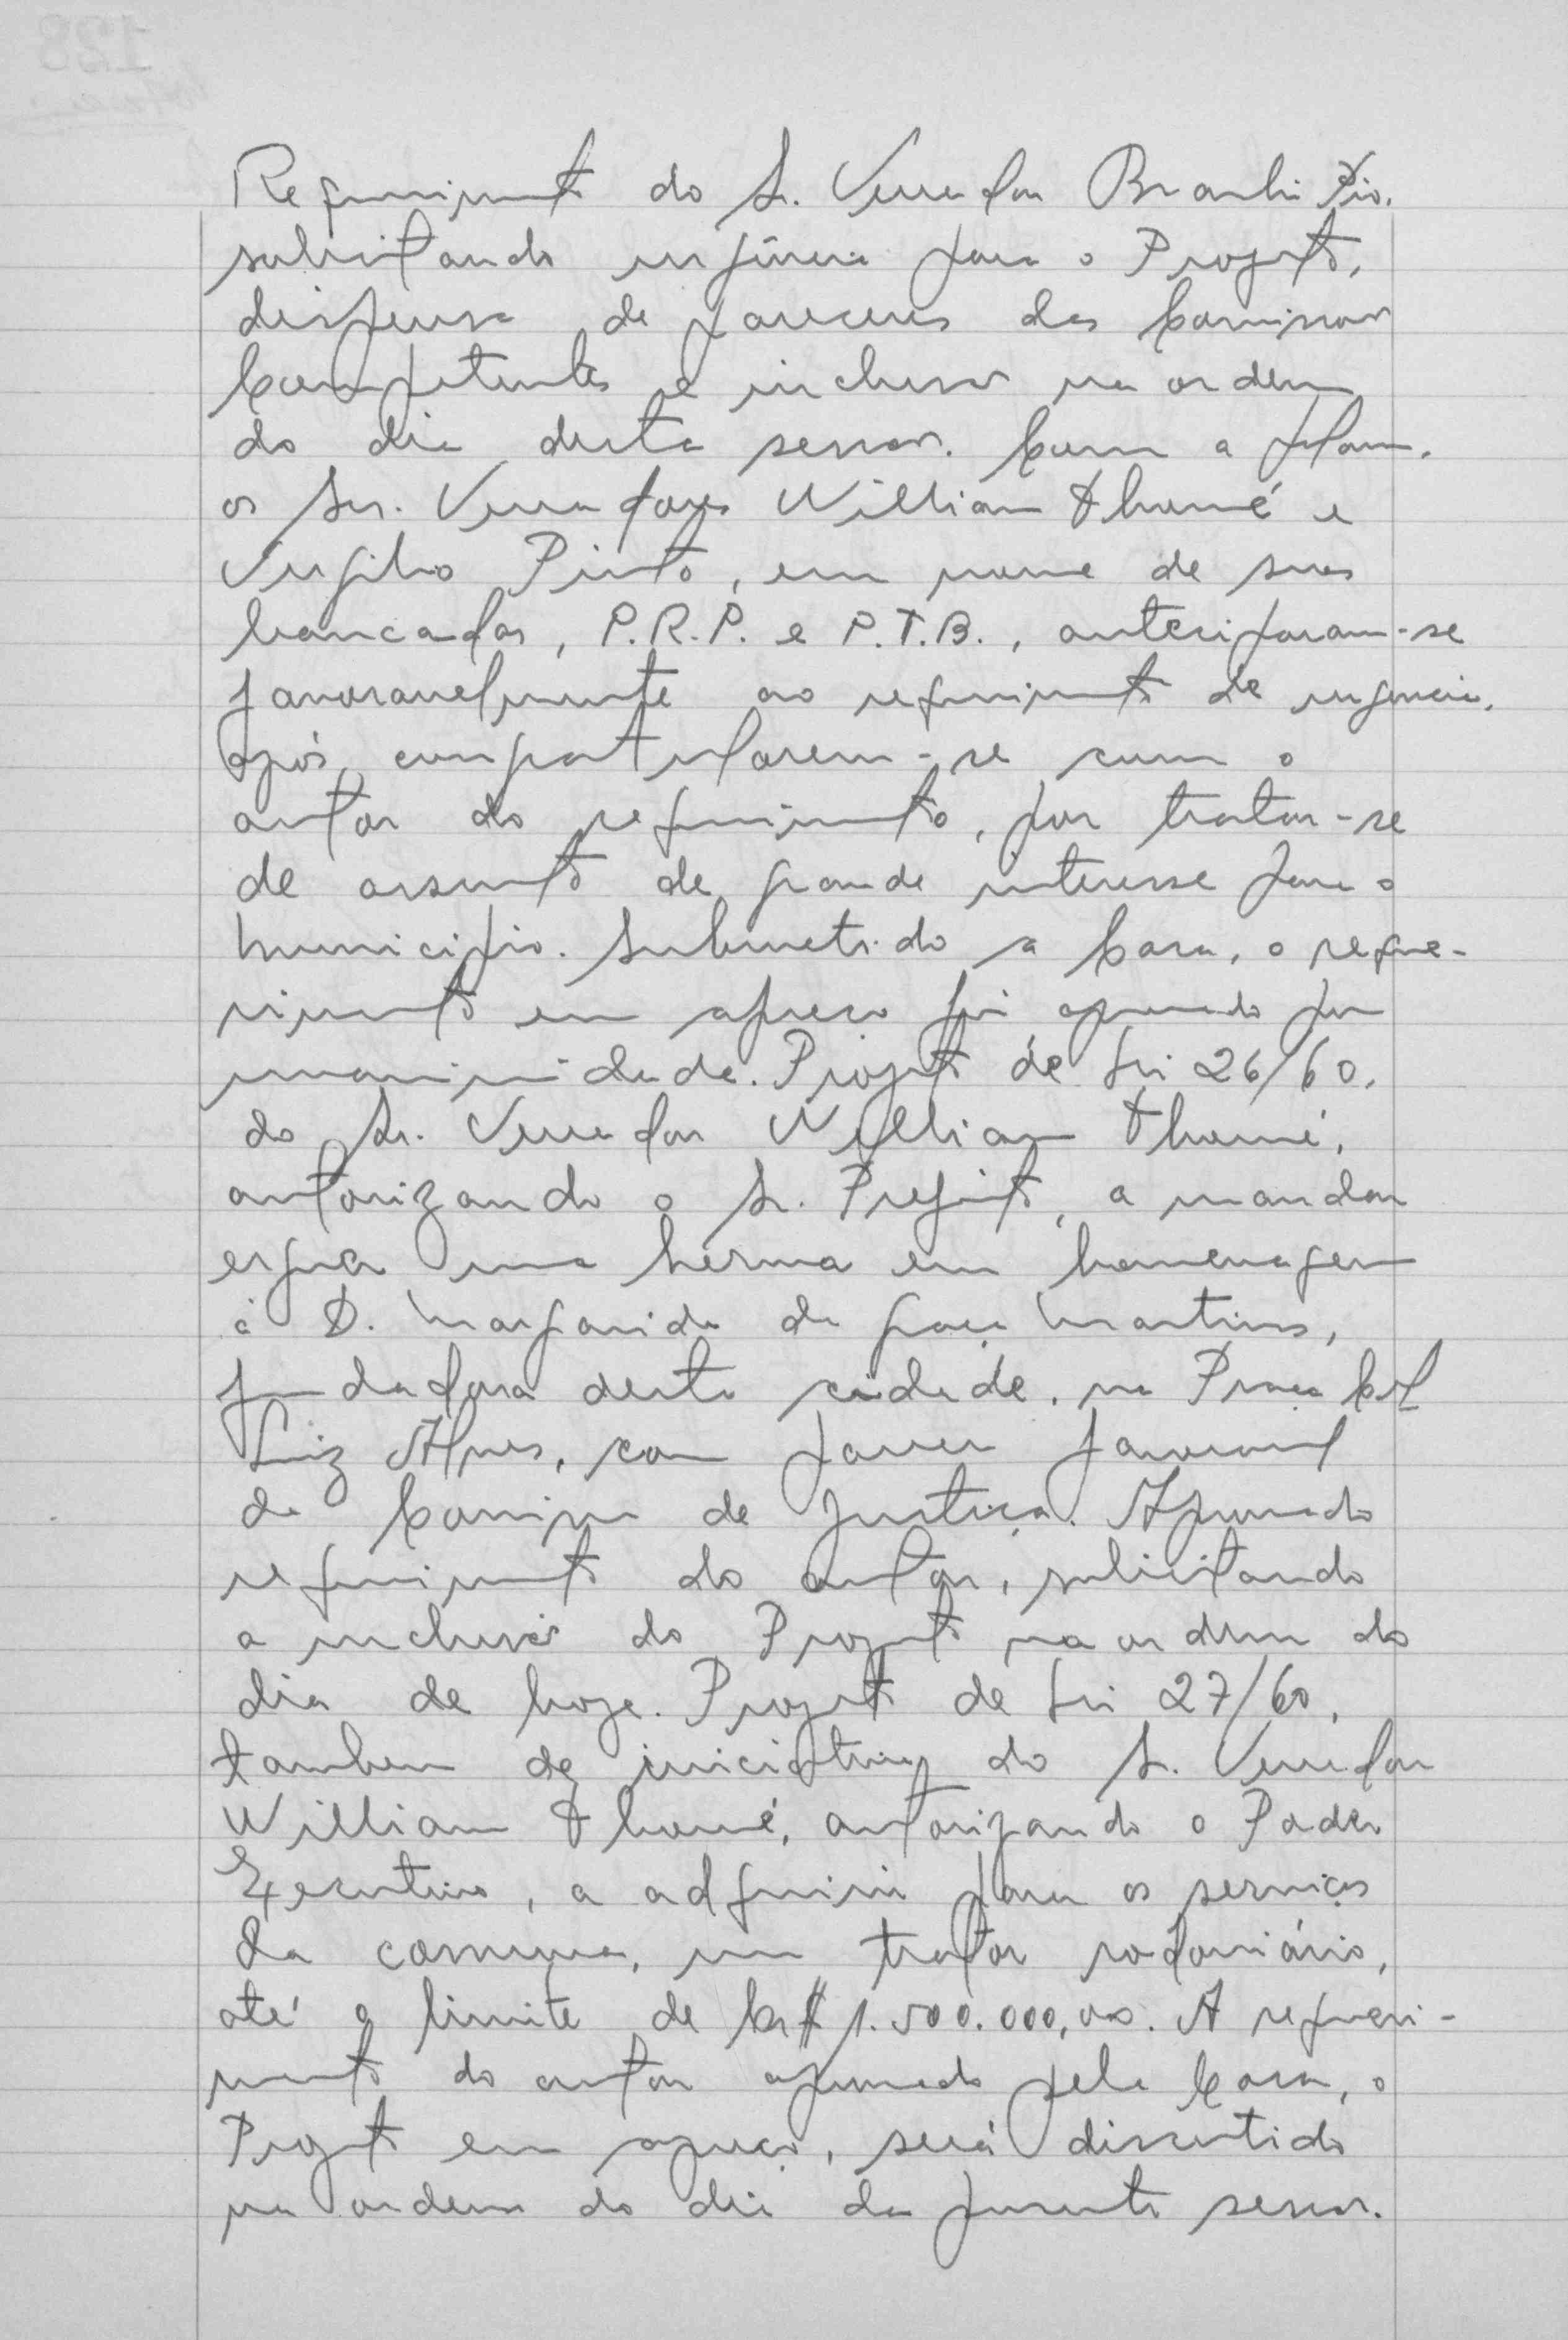 Requerimento do Sr. Vereador Brasilio Pio,
solicitando urgência para o Projeto,
dispensa de pareceres das Comissoes
Competentes e inclusão na ordem
do dia desta sessão. Com a palavra,
os Srs. Vereadores William Thomé e
Virgilio Pinto, em nome de suas
bancadas, P.R.P. e P.T.B., anteciparam-se
favoravelmente ao requerimento de urgencia,
após congratularem-se com o
autor do requerimento, por tratar-se
de assunto de grande interesse para o
municipio. Submetido a Casa, o reque-
rimento em apreço foi aprovado por
unanimidade. Projeto de Lei 26/60,
do Sr. Vereador William Thomé,
autorizando o Sr. Prefeito, a mandar
erguer uma herma em homenagem
á D. Margarida da Graça Martins,
fundadora desta cidade, na Praça Cel
Luiz Alves, com parecer favoravel
da Comissão de Justiça. Aprovado
requerimento do autor, solicitando
a inclusão do Projeto na ordem do
dia de hoje. Projeto de Lei 27/60,
tambem de iniciativa do Sr. Vereador
William Thomé, autorizando o Poder
Executivo, a adquirir para os serviços
da comuna, um trator rodoviário,
até o limite de Cr$ 1.500.000,00. A requeri-
mento do autor aprovado pela Casa, o
Projeto em apreço, será discutido
na ordem do dia da presente sessão.